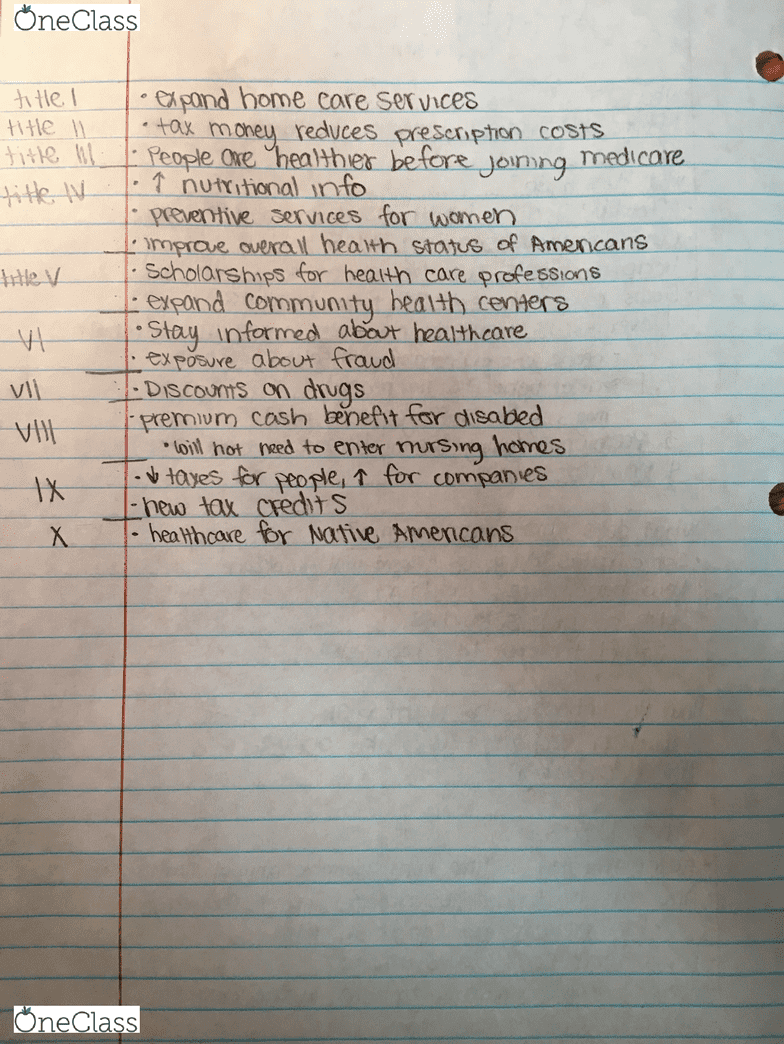 OneClass
title I · expand home care services
title II · tax money reduces prescription costs
title III · People are healthier before joining medicare
title IV · ↑ nutritional info
· preventive services for women
· improve overall health status of Americans
title V · Scholarships for health care professions
· expand community health centers
VI · Stay informed about healthcare
· exposure about fraud
VII · Discounts on drugs
VIII · premium cash benefit for disabled
· Will not need to enter nursing homes
IX · ↓ taxes for people, ↑ for companies
- new tax credits
X · healthcare for Native Americans
OneClass